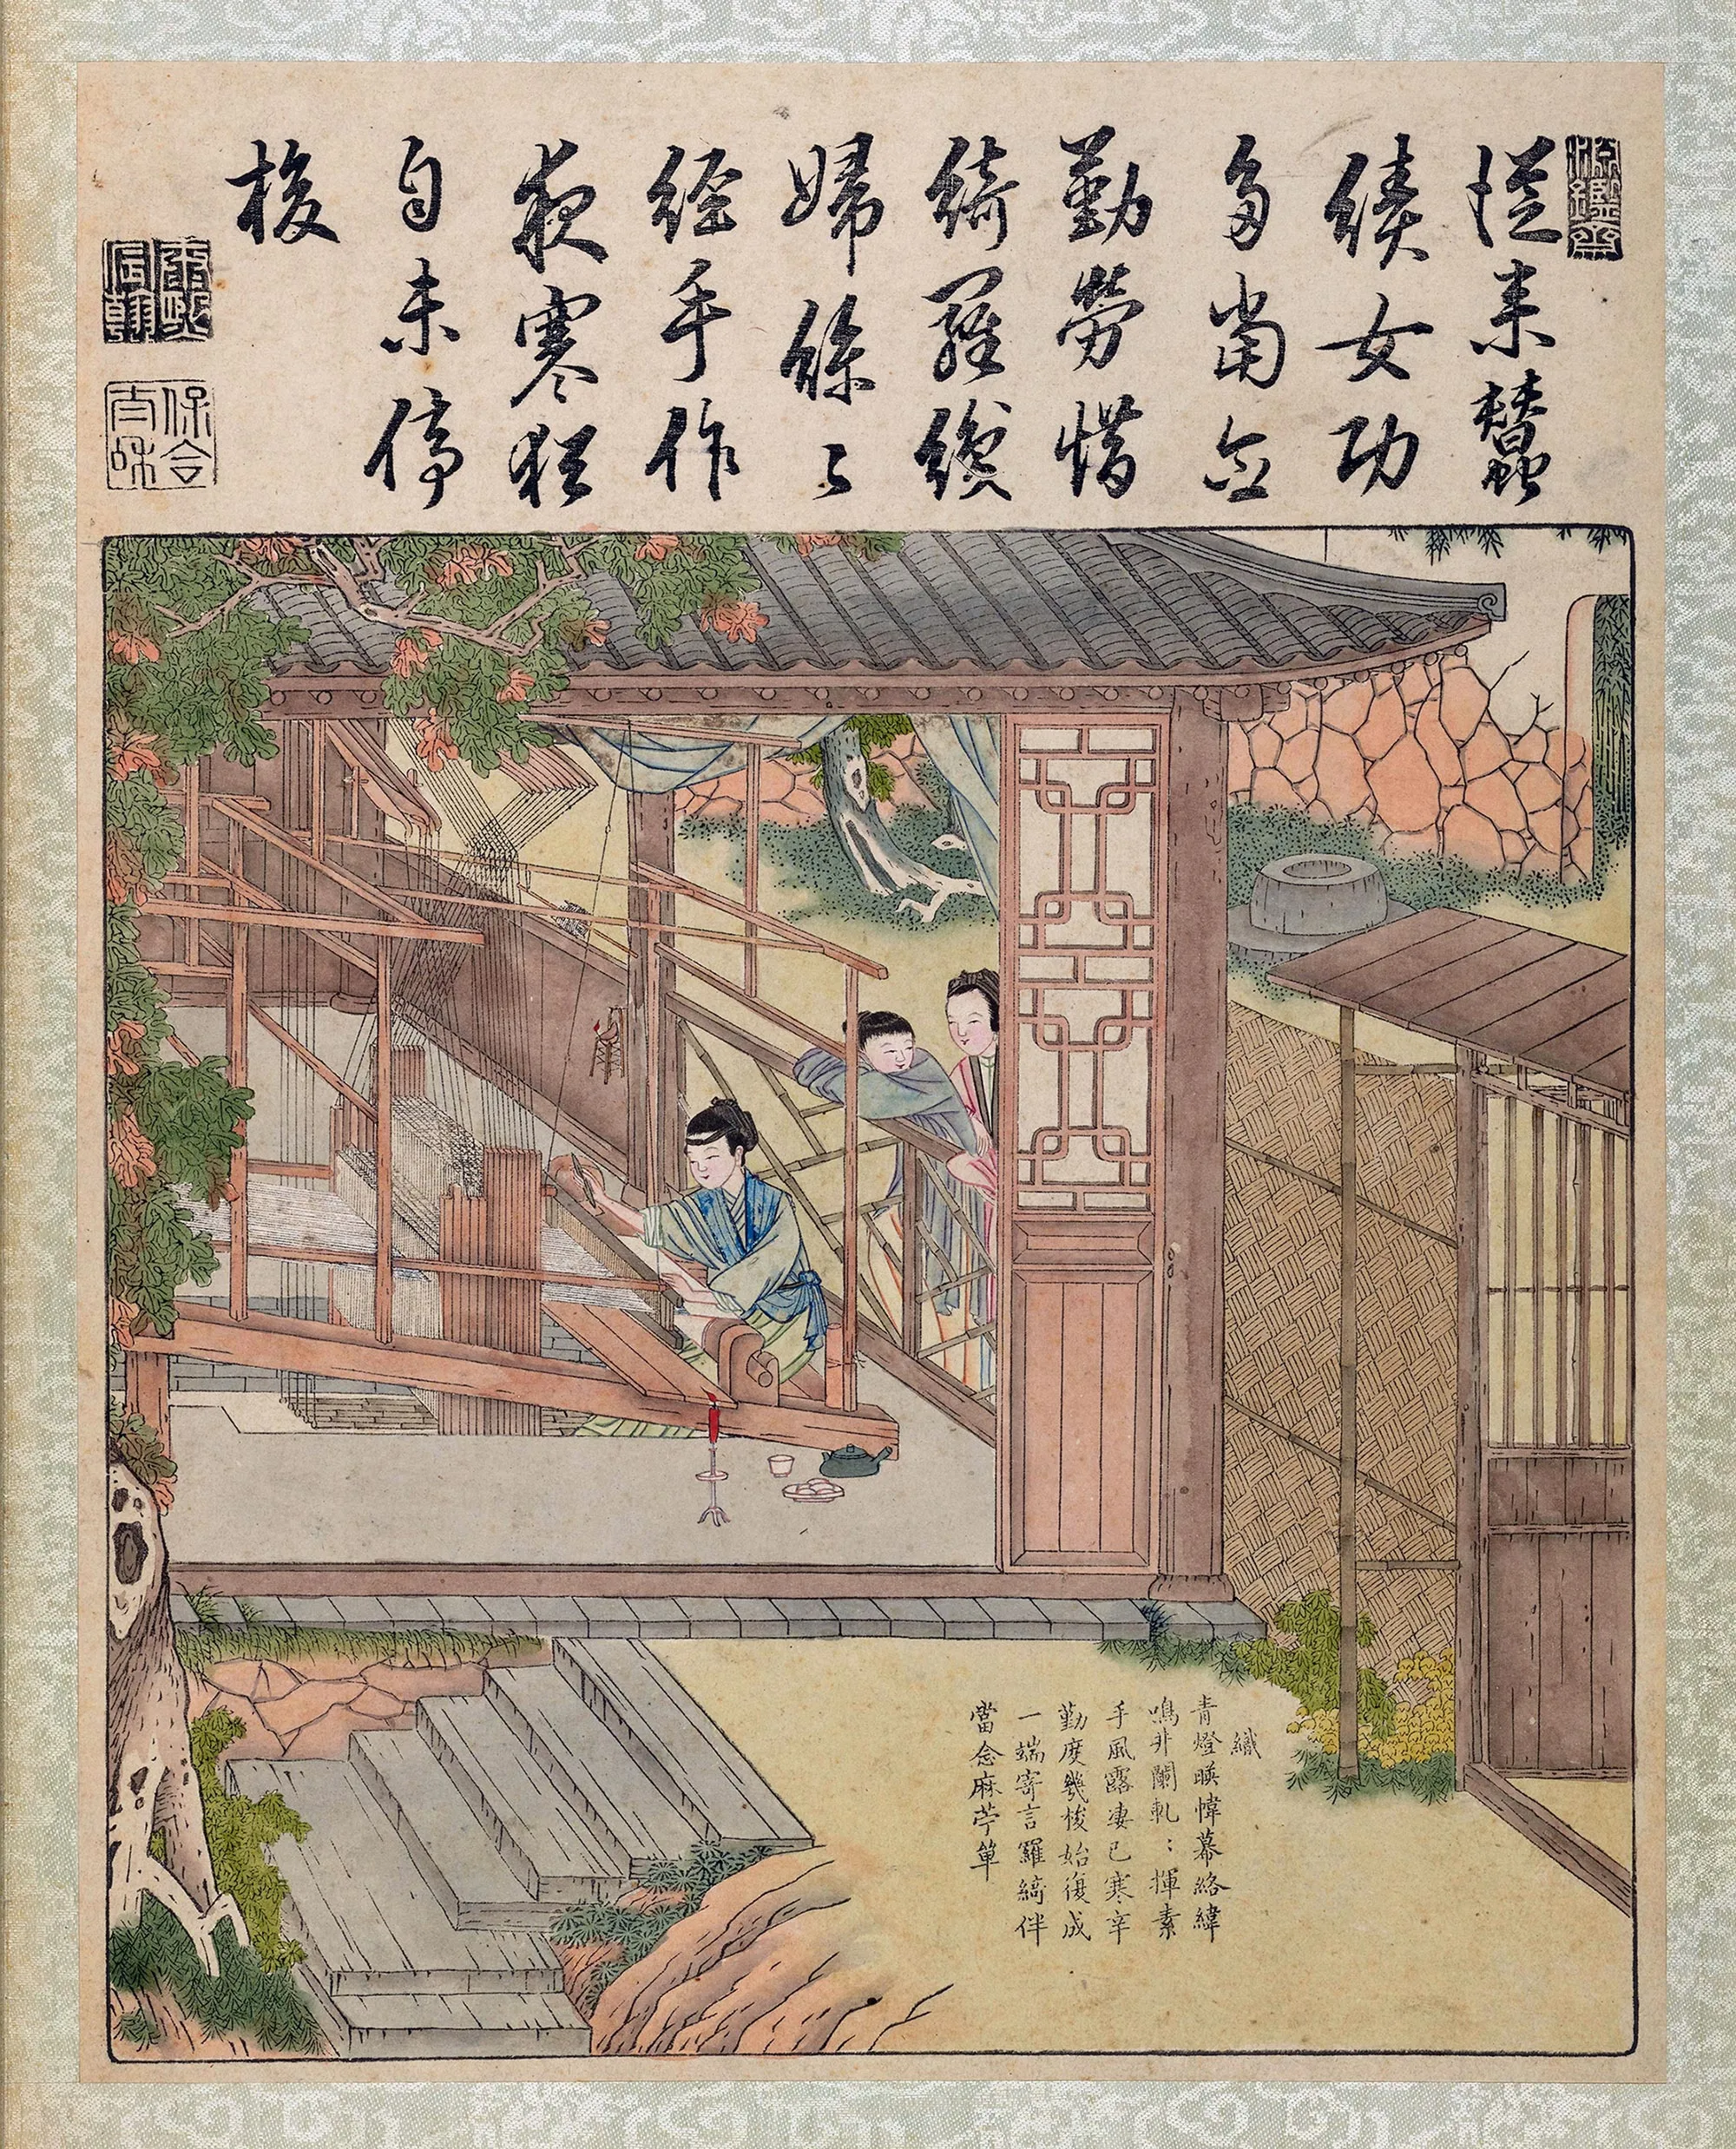 淵鑒齋
從来蠶
績女功
多當念
勤勞惜
綺羅織
婦絲々
經手作
夜寒猶
自未停
梭
康熙宸翰
保合太和
織
青燈暎幃幕絡緯
鳴井闌軋〻揮素
手風露凄已寒辛
勤度幾梭始復成
一端寄言羅綺伴
當念麻苧單